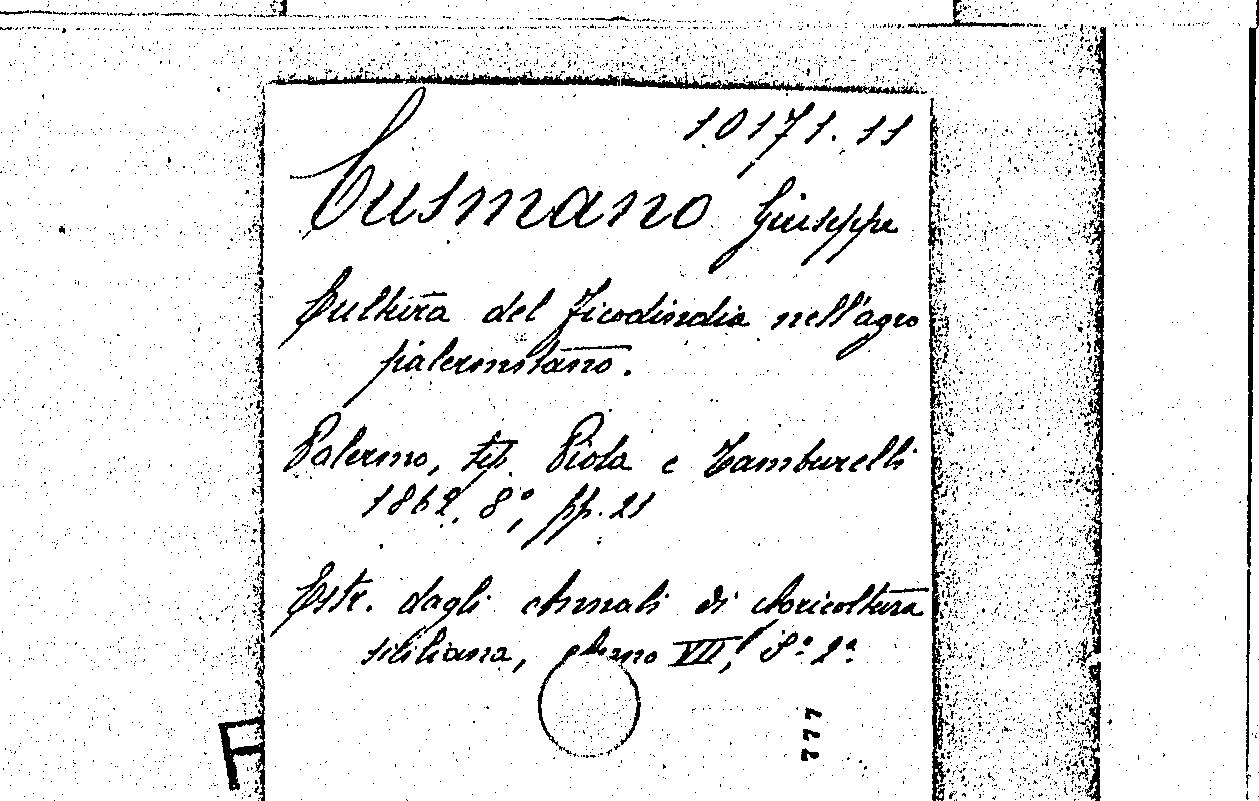 10171.11
Cusmano Giuseppe
Cultura del Ficodindia nell'agro
palermitano.
Palermo, tip. Piola e Tamburelli
1862, 8°, pp. 21
Estr. dagli Annali di Agricoltura
siciliana, Anno VII, S. 2ª
777